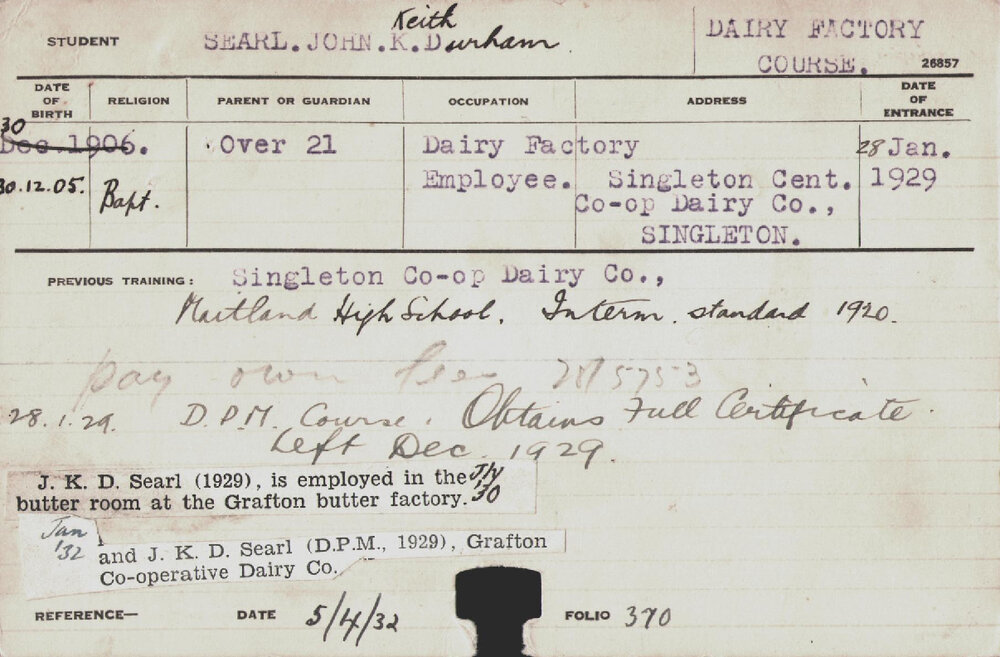 STUDENT SEARL. JOHN. K. Durham Keith
DAIRY FACTORY
COURSE. 26857
DATE OF BIRTH RELIGION PARENT OR GUARDIAN OCCUPATION ADDRESS DATE OF ENTRANCE
30
Dec. 1906. Over 21 Dairy Factory 28 Jan.
30.12.05. Bapt. Employee. Singleton Cent. 1929
Co-op Dairy Co.,
SINGLETON.
PREVIOUS TRAINING: Singleton Co-op Dairy Co.,
Maitland High School. Interm. standard 1920.
pay own fees
28.1.29. D.P.M. Course. Obtains Full Certificate.
Left Dec. 1929.
J. K. D. Searl (1929), is employed in the Jly
butter room at the Grafton butter factory. '30
Jan
'32 and J. K. D. Searl (D.P.M., 1929), Grafton
Co-operative Dairy Co.
REFERENCE— DATE 5/4/32 FOLIO 370